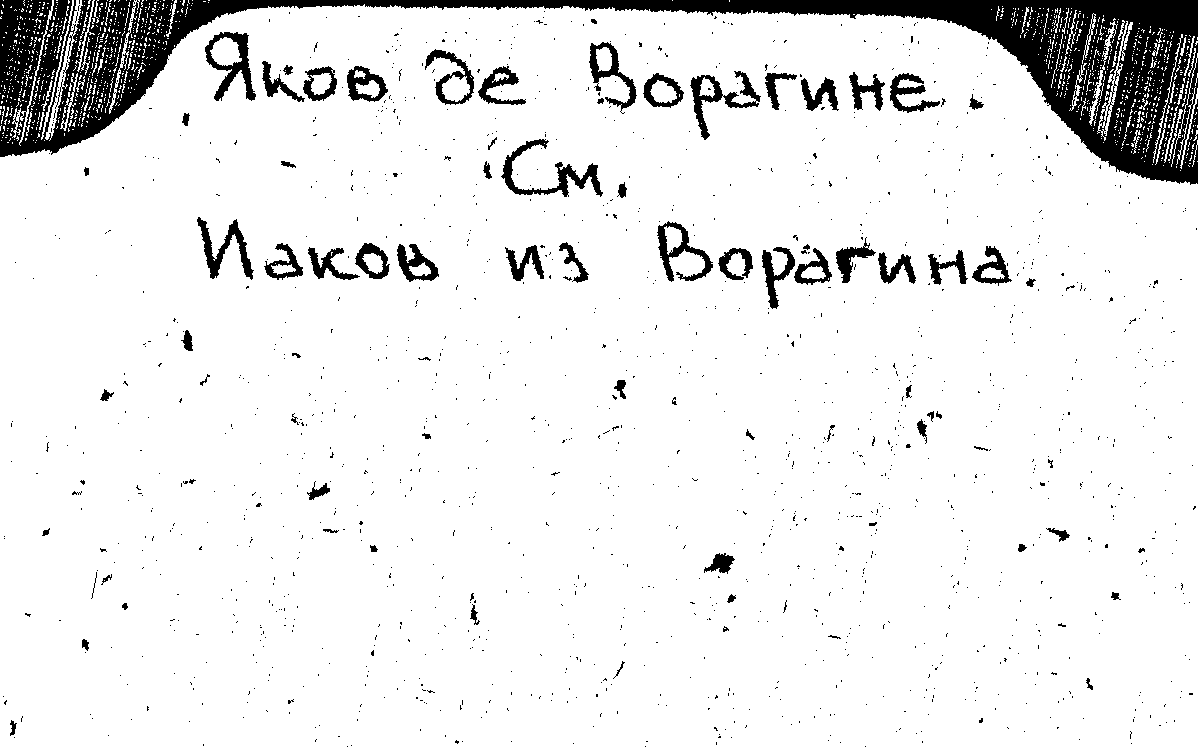 Яков де Ворагине.
См.
Иаков из Ворагина.